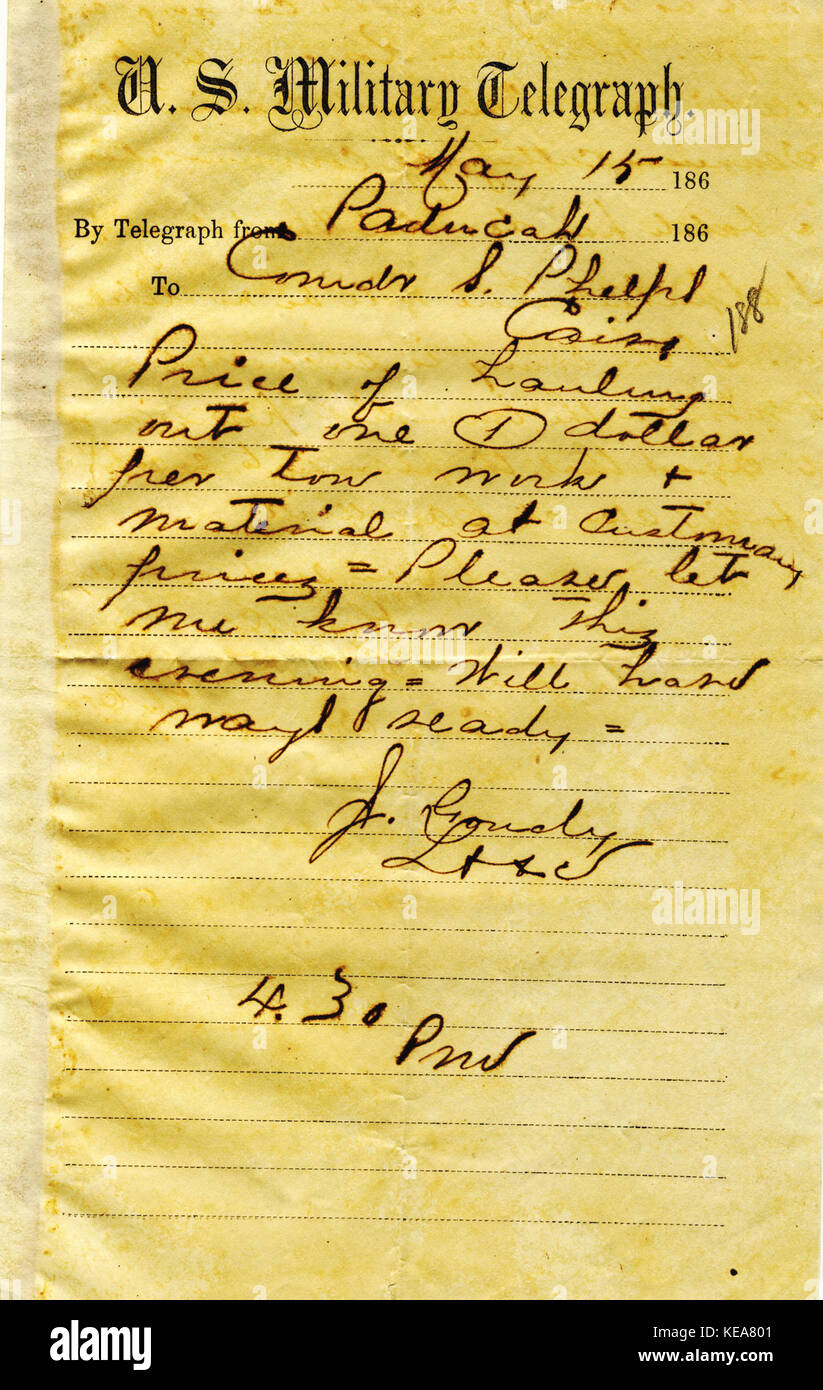 U. S. Military Telegraph.
May 15 186
By Telegraph from Paducah 186
To Comdr S. Phelps
Cairo
188
Price of hauling
out one (1) dollar
per Ton work +
material at Customary
prices = Please let
me know this
evening = Will have
ways ready =
J. Goudy
4.30
Pm
alamy stock photo
KEA801
www.alamy.com